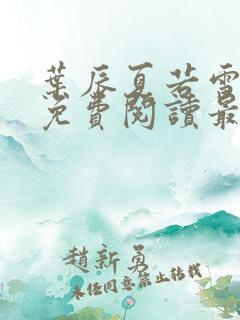 葉辰夏若雪
免費閱讀最
趙新勇
未经同意禁止转载